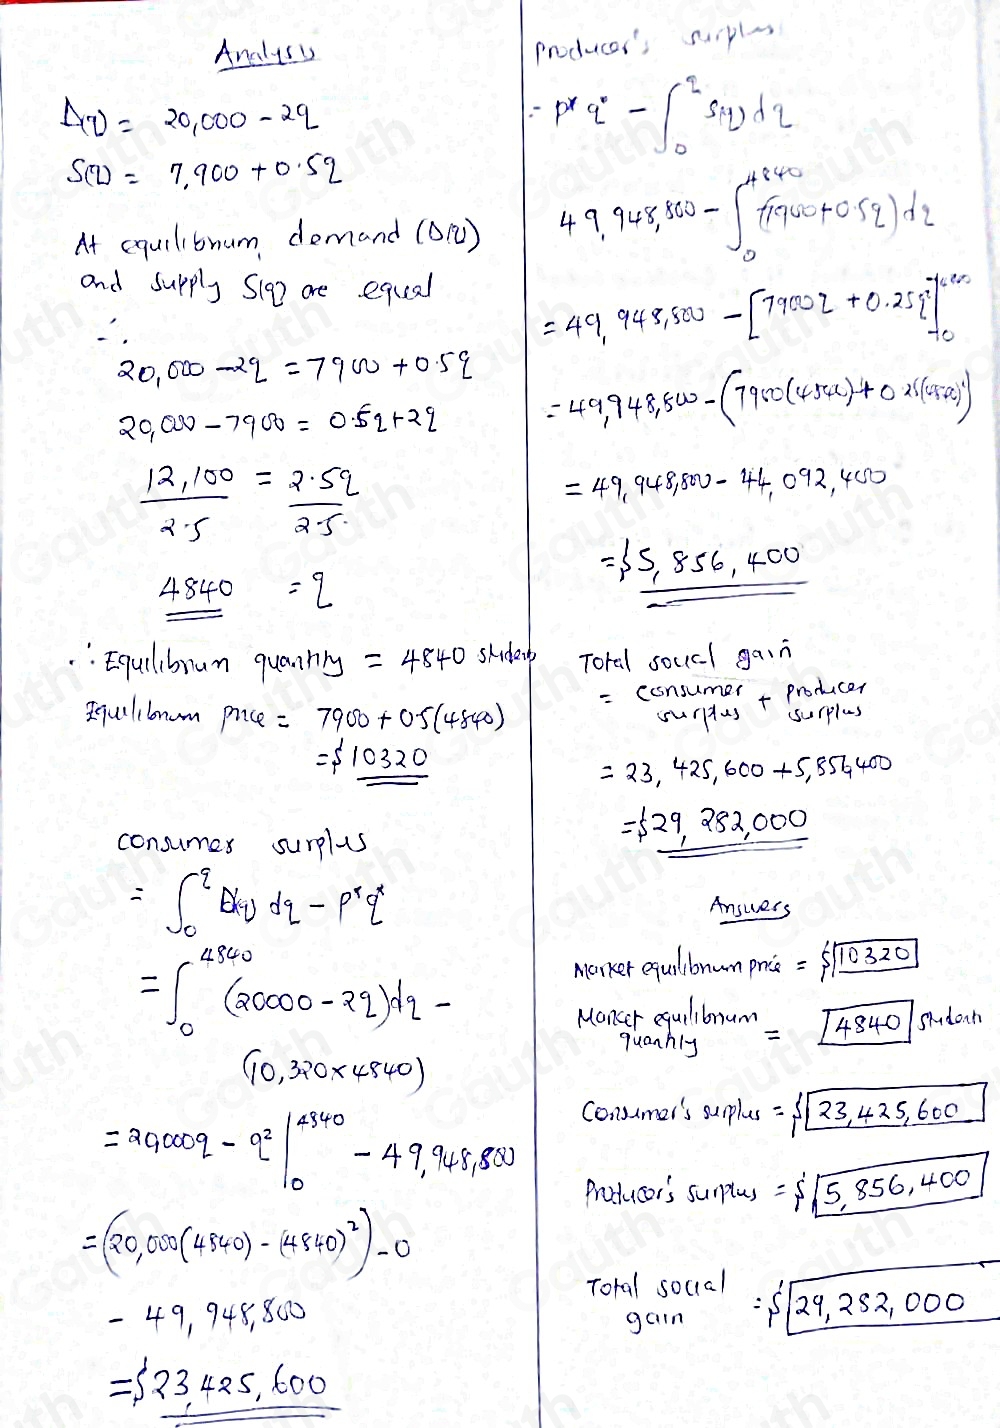 Analysis
D(q) = 20,000 - 2q
S(q) = 7,900 + 0.5q
At equilibrium, demand (D(q))
and supply S(q) are equal
∴
20,000 - 2q = 7900 + 0.5q
20,000 - 7900 = 0.5q + 2q
12,100 = 2.5q
2.5 2.5
4840 = q
∴ Equilibrium quantity = 4840 students
Equilibrium price = 7900 + 0.5(4840)
= $10320
consumer surplus
= ∫₀^q D(q) dq - p*q*
= ∫₀^4840 (20000 - 2q)dq -
(10,320 x 4840)
= 20,000q - q² |₀^4840 - 49,948,800
= (20,000(4840) - (4840)²) - 0
- 49,948,800
= $23,425,600
Producer's surplus
= p*q* - ∫₀^q S(q) dq
49,948,800 - ∫₀^4840 (7900 + 0.5q)dq
= 49,948,800 - [7900q + 0.25q²]₀^4840
= 49,948,800 - (7900(4840) + 0.25(4840)²)
= 49,948,800 - 44,092,400
= $5,856,400
Total social gain
= consumer surplus + producer surplus
= 23,425,600 + 5,856,400
= $29,282,000
Answers
Market equilibrium price = $10320
Market equilibrium quantity = 4840 students
Consumer's surplus = $23,425,600
Producer's surplus = $5,856,400
Total social gain = $29,282,000
Gauth